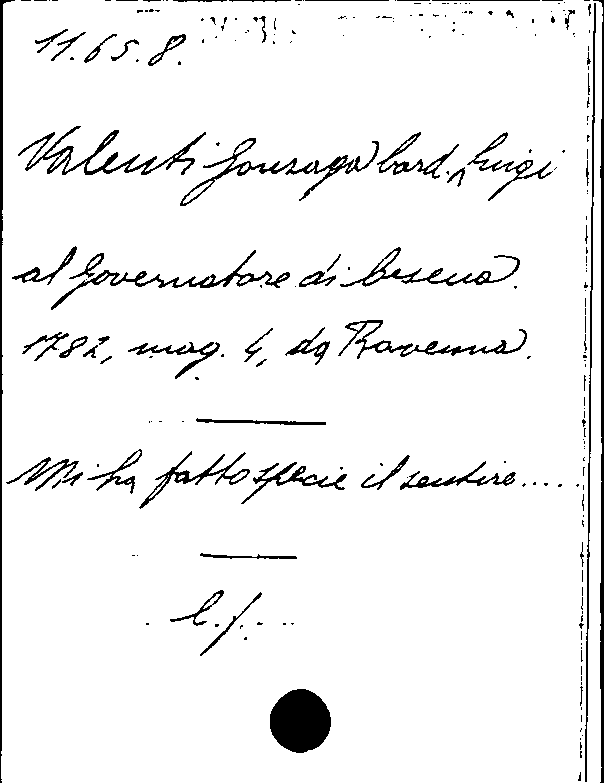 11.65.8.
Valenti Gonzaga Card. Luigi
al Governatore di Cesena.
1782, mag. 4, da Ravenna.
Mi ha fatto specie il sentire.....
l.f.